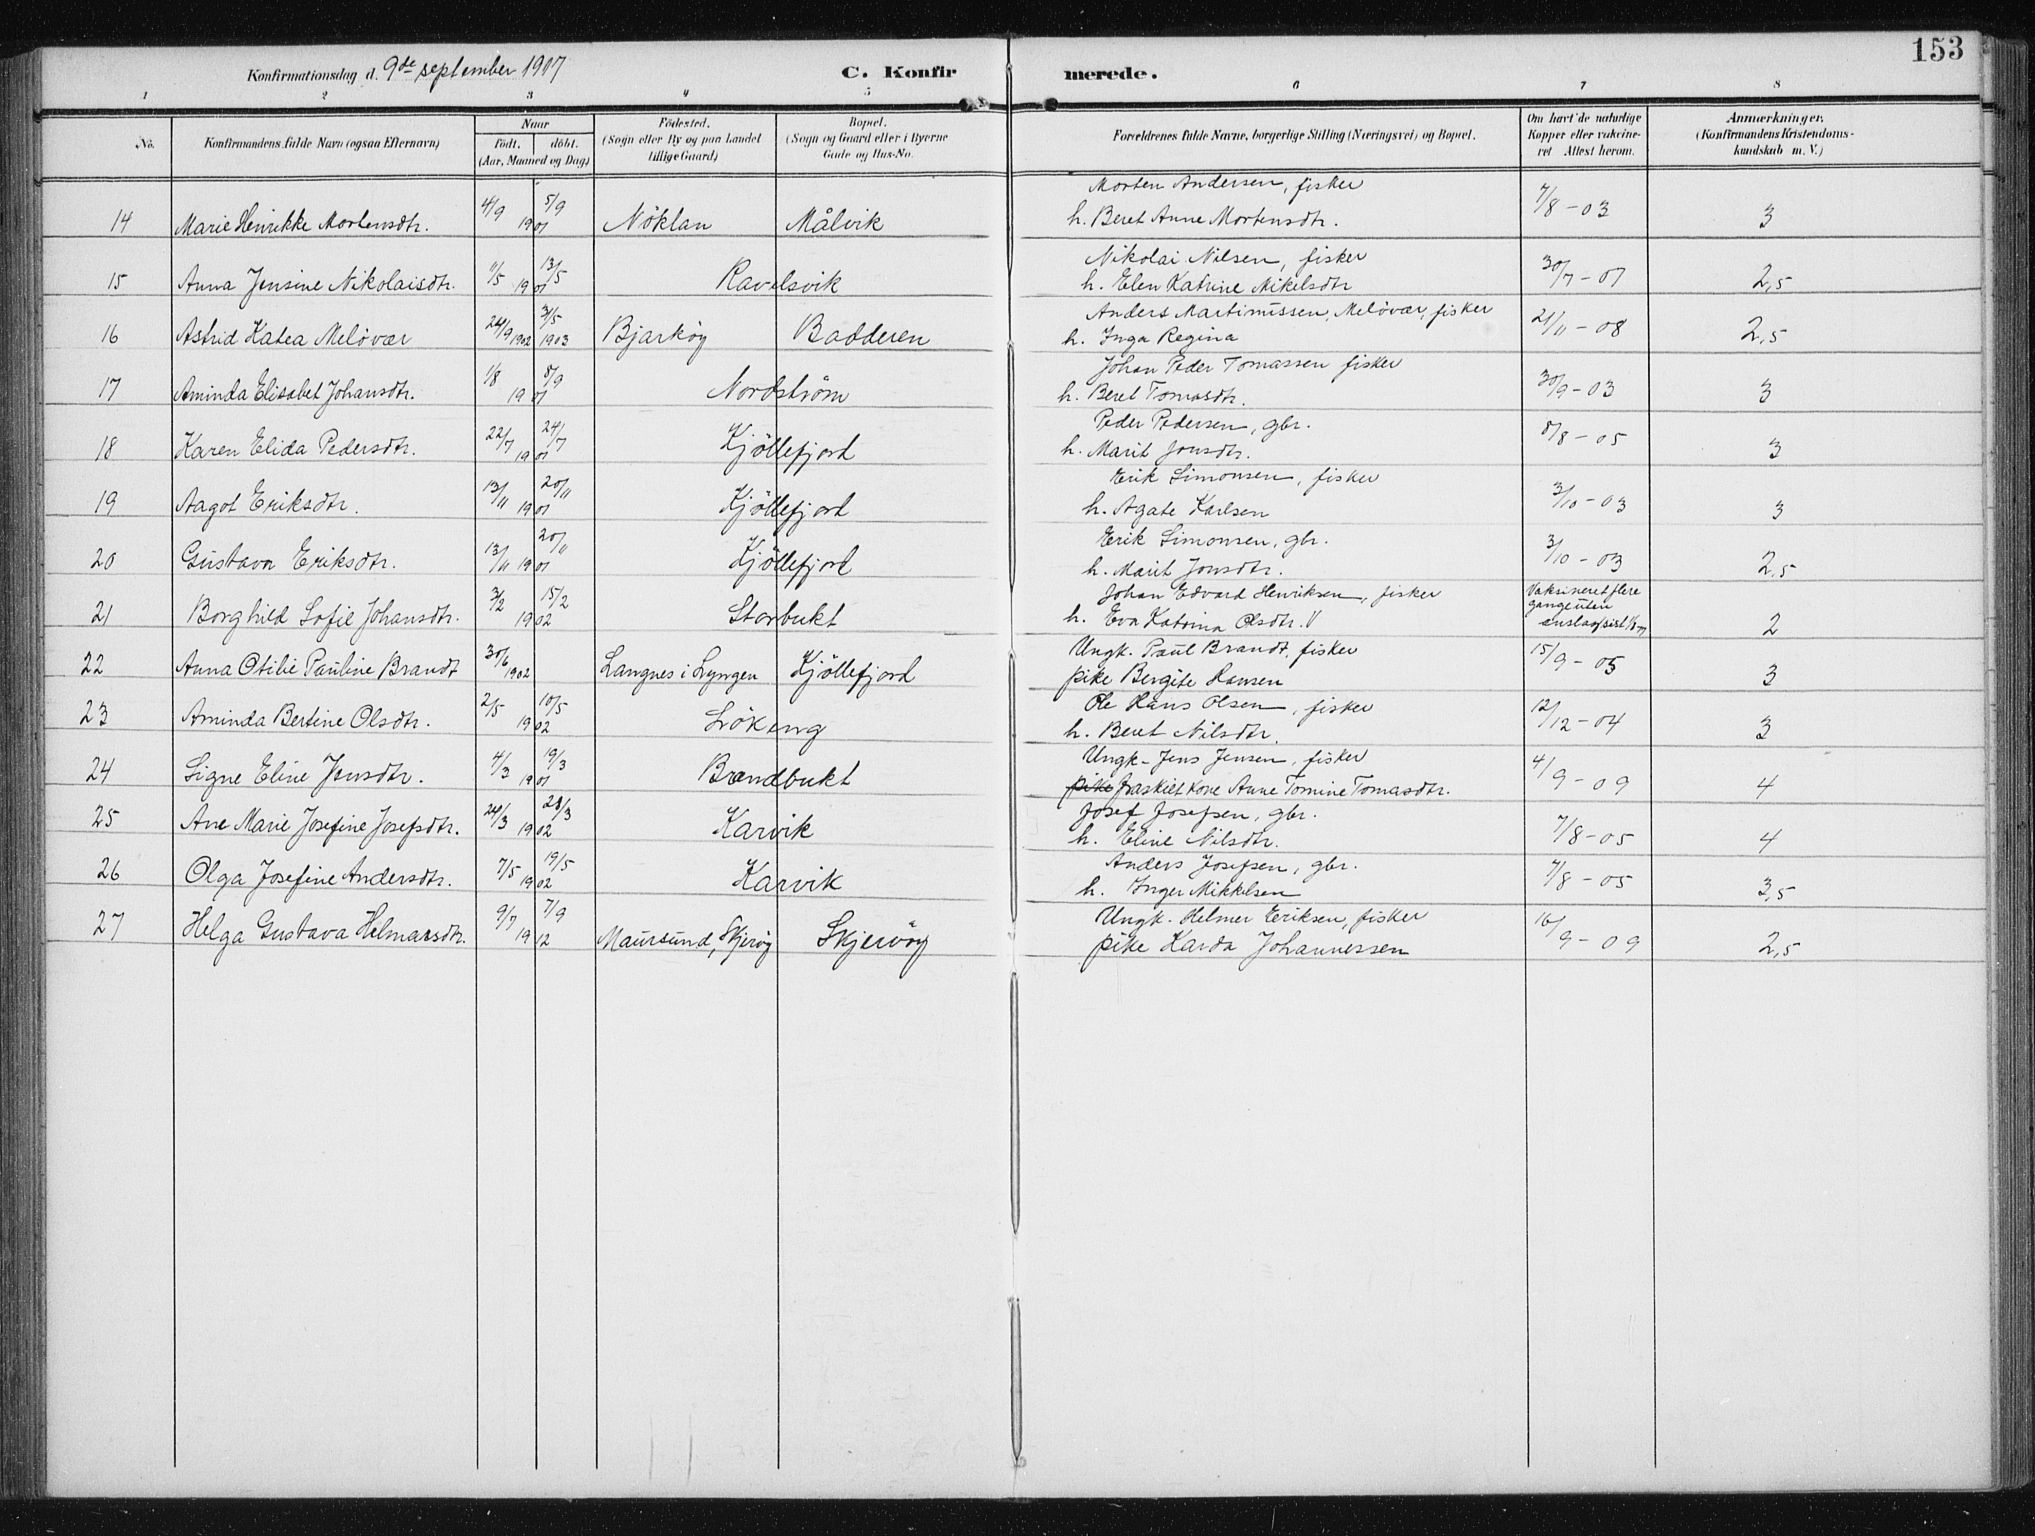 153
Konfirmationsdag d. 9de september 1917
C. Konfirmerede.
1 2 3 4 5 6 7 8
No.
Konfirmandens fulde Navn (ogsaa Efternavn)
Naar
Födt. döbt.
(Aar, Maaned og Dag)
Födested.
(Sogn eller By og paa Landet
tillige Gaard)
Bopæl.
(Sogn og Gaard eller i Byerne
Gade og Hus-No.
Forældrenes fulde Navne, borgerlige Stilling (Næringsvei) og Bopæl.
Om havt de naturlige
Kopper eller vakcine-
ret Attest herom.
Anmærkninger.
(Konfirmandens Kristendoms-
kundskab m. V.)
Morten Andersen, fisker
14 Marie Henrikke Mortensdtr. 4/9 5/9 1901 Nöklan Målvik h. Beret Anne Mortensdtr. 7/8-03 3
Nikolai Nilsen, fisker
15 Anna Jensine Nikolaisdtr. 11/5 13/5 1901 Ravelsvik h. Elen Katrine Mikelsdtr 30/7-07 2,5
Anders Martimissen, Meløvær, fisker
16 Astrid Katea Meløvær 24/9 1902 31/5 1903 Bjarköy Badderen h. Inga Regina 21/11-08 2,5
Johan Peder Tomassen fisker
17 Aminda Elisabet Johansdtr. 1/8 8/9 1901 Nordstrøm h. Beret Tomasdtr. 30/9-03 3
Peder Pedersen, gbr.
18 Karen Elida Pedersdtr. 22/7 24/7 1901 Kjöllefjord h. Marit Jonsdtr. 8/8-05 3
Erik Simonsen, fisker
19 Aagot Eriksdtr. 13/11 20/11 1901 Kjöllefjord h. Agate Karlsen 3/10-03 3
Erik Simonsen, gbr.
20 Gustava Eriksdtr. 13/11 20/11 1901 Kjöllefjord h. Marit Jonsdtr. 3/10-03 2,5
Johan Edvard Henriksen, fisker Vaksineret flere
gange uten
21 Borghild Sofie Johansdtr. 3/2 15/2 1902 Storbukt h. Eva Katrina Olsdtr. 2
Ungk. Paul Brandt, fisker
22 Anna Otilie Pauline Brandt 30/6 1902 Langnes i Lyngen Kjöllefjord pike Bergite Hansen 15/9-05 3
Ole Hans Olsen, fisker
23 Aminda Bertine Olsdtr. 2/5 10/5 1902 Lökeng h. Beret Nilsdtr. 12/12-04 3
Ungk. Jens Jensen, fisker
24 Signe Eline Jensdtr. 4/3 19/3 1901 Brandbukt pike fraskilt kone Anne Tomine Tomasdtr. 4/9-09 4
Josef Josefsen, gbr.
25 Ane Marie Josefine Josefsdtr. 24/3 28/3 1902 Karvik h. Eline Nilsdtr. 7/8-05 4
Anders Josefsen, gbr.
26 Olga Josefine Andersdtr. 7/5 19/5 1902 Karvik h. Inger Mikkelsen 7/8-05 3,5
Ungk. Helmer Eriksen, fisker
27 Helga Gustava Helmarsdtr. 9/7 7/9 1912 Maursund, Skjervöy Skjervöy pike Karda Johannessen 16/9-09 2,5